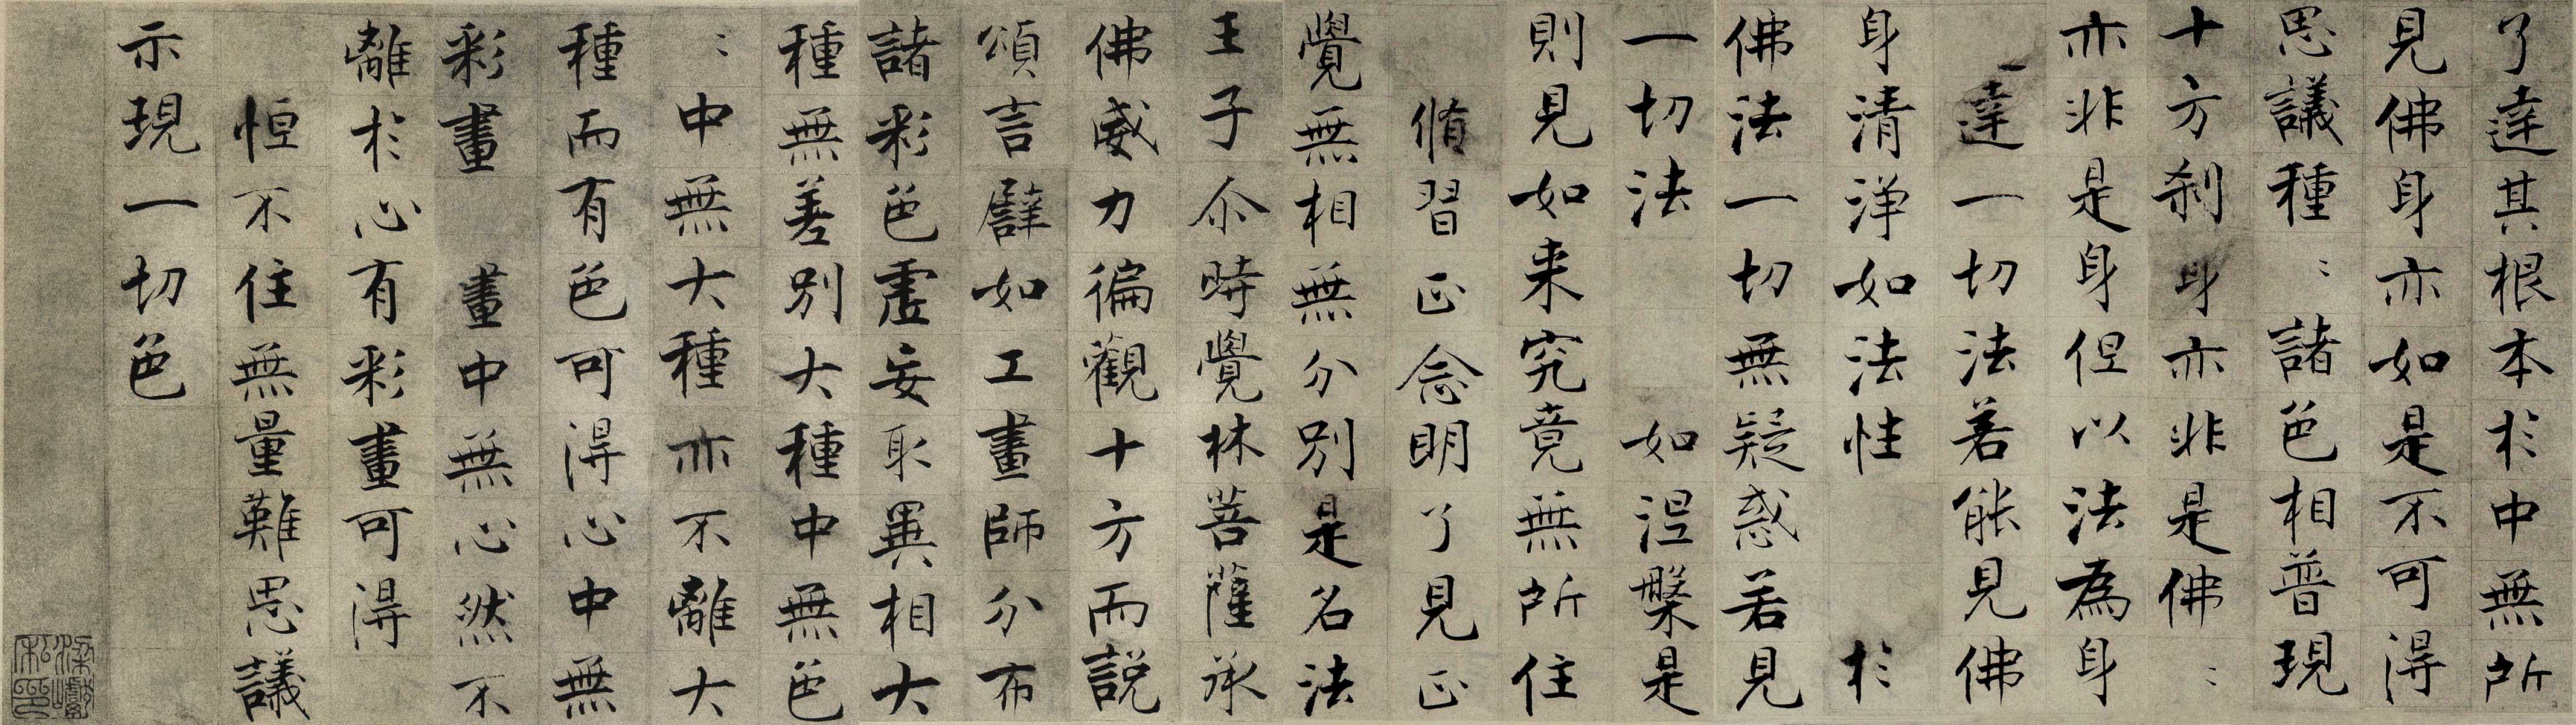 了達其根本於中無所
見佛身亦如是不可得
思議種〻諸色相普現
十方刹身亦非是佛〻
亦非是身但以法為身
達一切法若能見佛
身清淨如法性 於
佛法一切無疑惑若見
一切法 如涅槃是
則見如来究竟無所住
脩習正念明了見正
覺無相無分別是名法
王子尒時覺林菩薩承
佛威力徧觀十方而說
頌言譬如工畫師分布
諸彩色虛妄取異相大
種無差別大種中無色
〻中無大種亦不離大
種而有色可得心中無
彩畫 畫中無心然不
離於心有彩畫可得
恒不住無量難思議
示現一切色